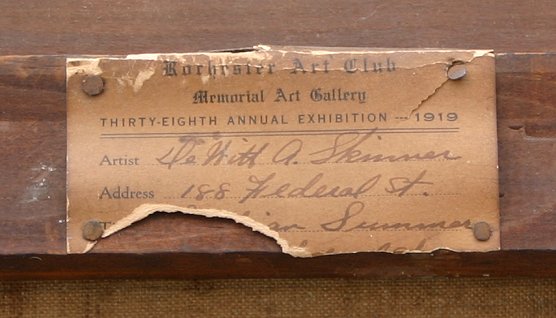 Rochester Art Club
Memorial Art Gallery
THIRTY-EIGHTH ANNUAL EXHIBITION — 1919
Artist DeWitt A. Skinner
Address 188 Federal St.
Summer